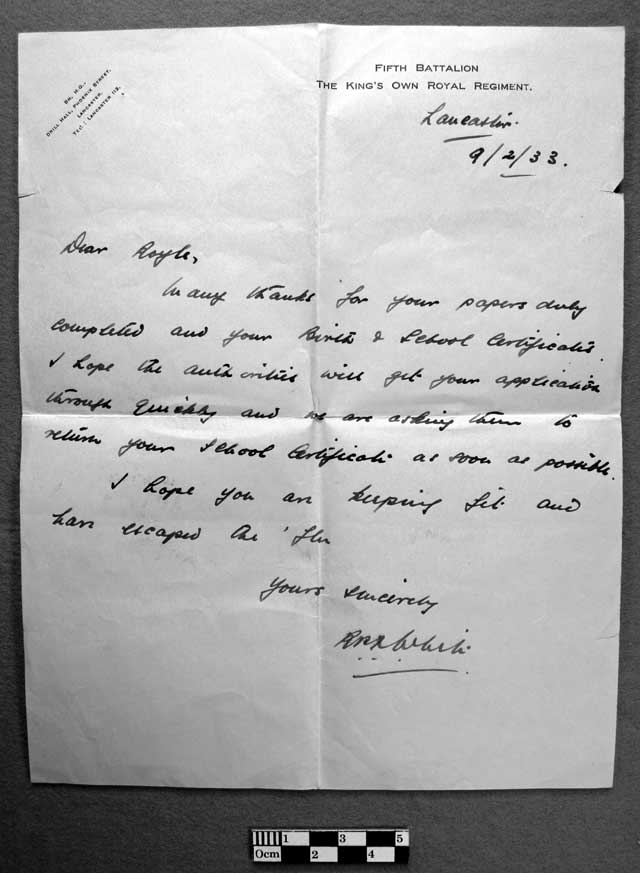 BN. H.Q.,
DRILL HALL, PHOENIX STREET,
LANCASTER.
TEL: LANCASTER 113.
FIFTH BATTALION
THE KING'S OWN ROYAL REGIMENT.
Lancaster.
9/2/33.
Dear Royle,
Many thanks for your papers duly
completed and your Birth & School Certificates.
I hope the authorities will get your application
through quickly and we are asking them to
return your School Certificate as soon as possible.
I hope you are keeping fit and
have escaped the 'flu
Yours sincerely
White
0cm 1 2 3 4 5